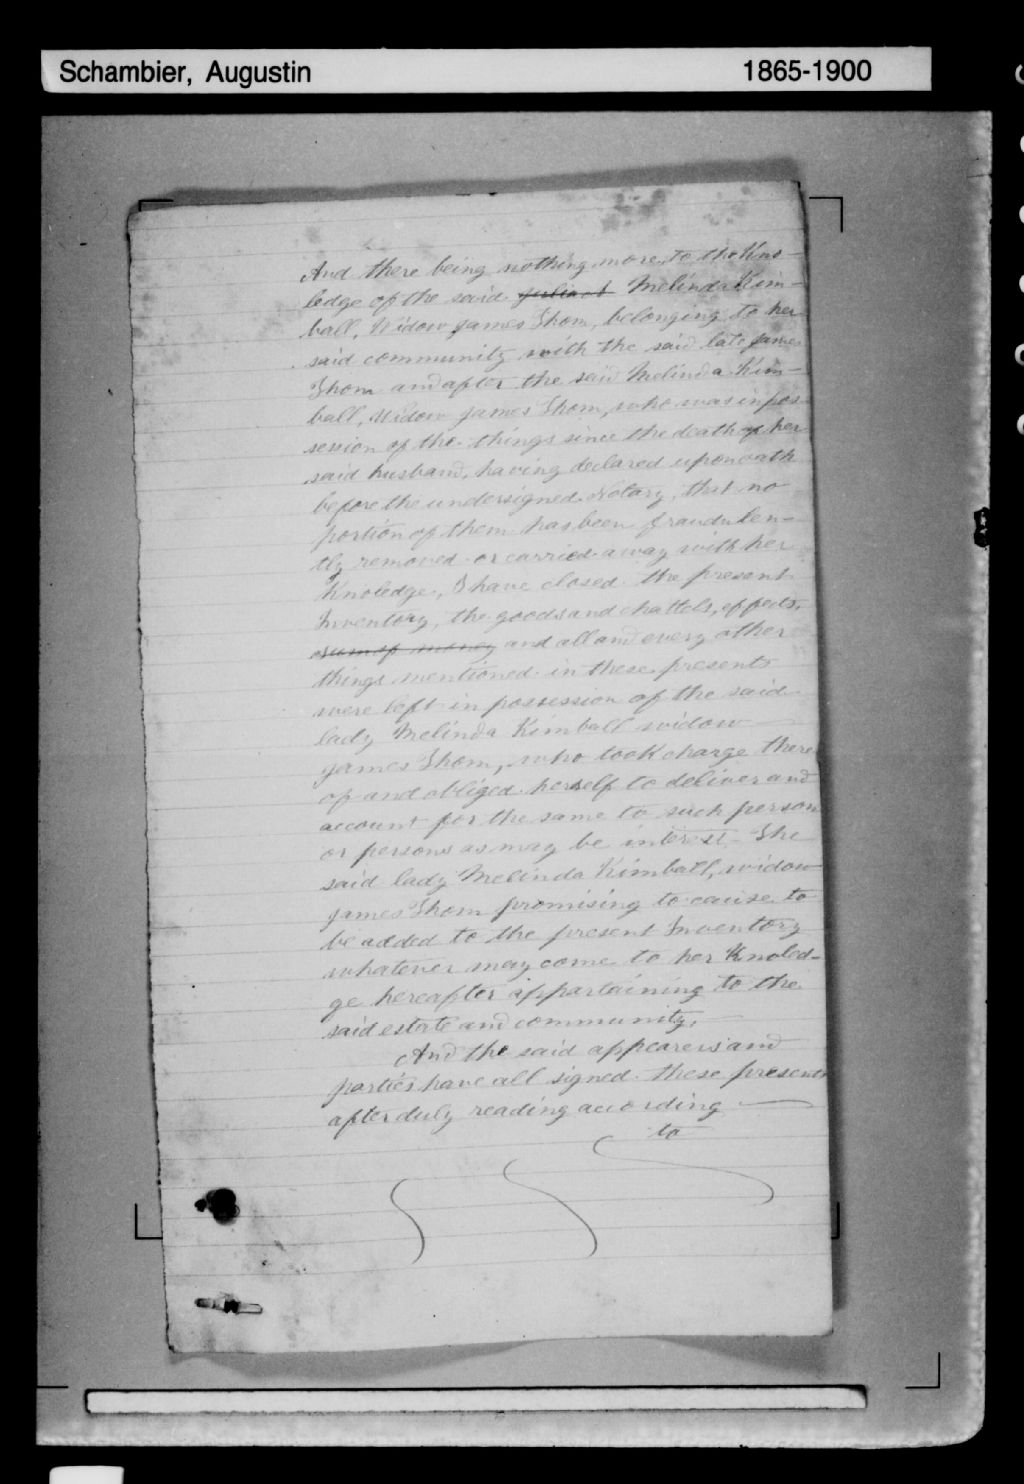 Schambier, Augustin 1865-1900
And there being nothing more, to the Kno-
ledge of the said Melinda Kim-
ball, Widow James Thom, belonging to her
said community with the said late James
Thom and after the said Melinda Kim-
ball, Widow James Thom, who was in pos-
session of the things since the death of her
said husband, having declared upon oath
before the undersigned Notary, that no
portion of them has been fraudulen-
tly removed or carried away with her
Knoledge, I have closed the present
Inventory, the goods and chattels, effects,
sum of money and all and every other
things mentioned in these presents
were left in possession of the said
lady Melinda Kimball widow
James Thom, who took charge there
of and obliged herself to deliver and
account for the same to such person
or persons as may be interest, The
said lady Melinda Kimball, widow
James Thom promising to cause to
be added to the present Inventory
whatever may come to her Knoled-
ge hereafter appartaining to the
said estate and community,
And the said appearers and
parties have all signed these presents
after duly reading according
to